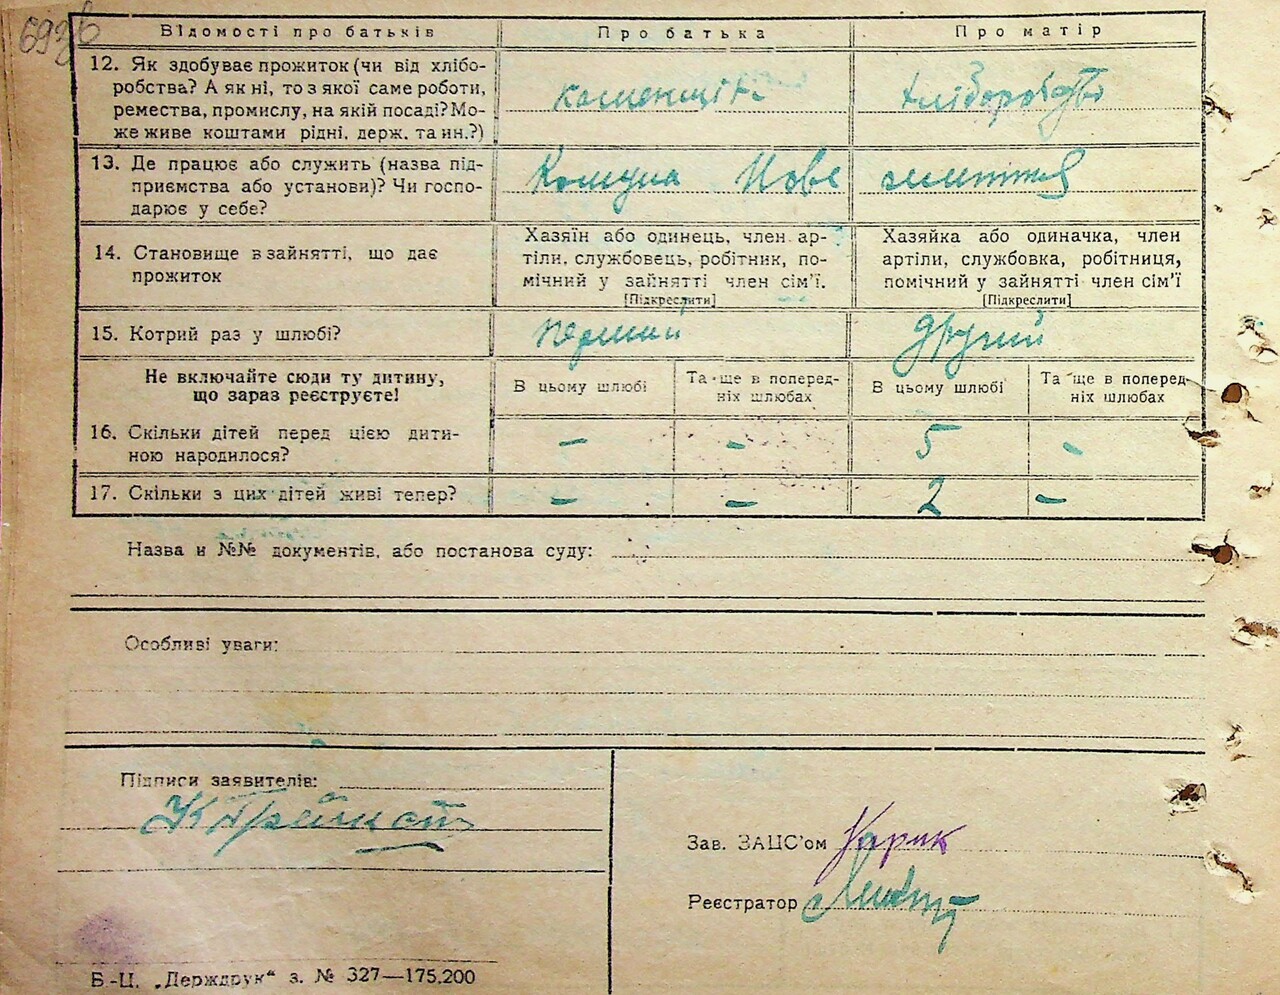 Відомості про батьків Про батька Про матір
12. Як здобуває прожиток (чи від хлібо-
робства? А як ні, то з якої саме роботи,
ремества, промислу, на якій посаді? Мо-
же живе коштами рідні, держ. та ин.?)
хліборобство
13. Де працює або служить (назва під-
приємства або установи)? Чи госпо-
дарює у себе?
Комуна Нове життя
14. Становище в зайнятті, що дає
прожиток
Хазяїн або одинець, член ар-
тіли, службовець, робітник, по-
мічний у зайнятті член сім'ї.
[Підкреслити]
Хазяйка або одиначка, член
артіли, службовка, робітниця,
помічний у зайнятті член сім'ї
[Підкреслити]
15. Котрий раз у шлюбі? перший другий
Не включайте сюди ту дитину,
що зараз реєструєте!
В цьому шлюбі
Та ще в поперед-
ніх шлюбах
В цьому шлюбі
Та ще в поперед-
ніх шлюбах
16. Скільки дітей перед цією дити-
ною народилося?
– – 5 –
17. Скільки з цих дітей живі тепер? – – 2 –
Назва и №№ документів, або постанова суду:
Особливі уваги:
Підписи заявителів:
Зав. ЗАЦС'ом
Реєстратор
Б.-Ц. „Держдрук“ з. № 327—175.200